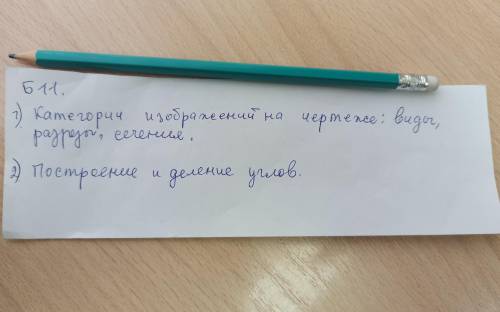 Б11.
1) Категории изображений на чертеже: виды,
разрезы, сечения.
2) Построение и деление углов.